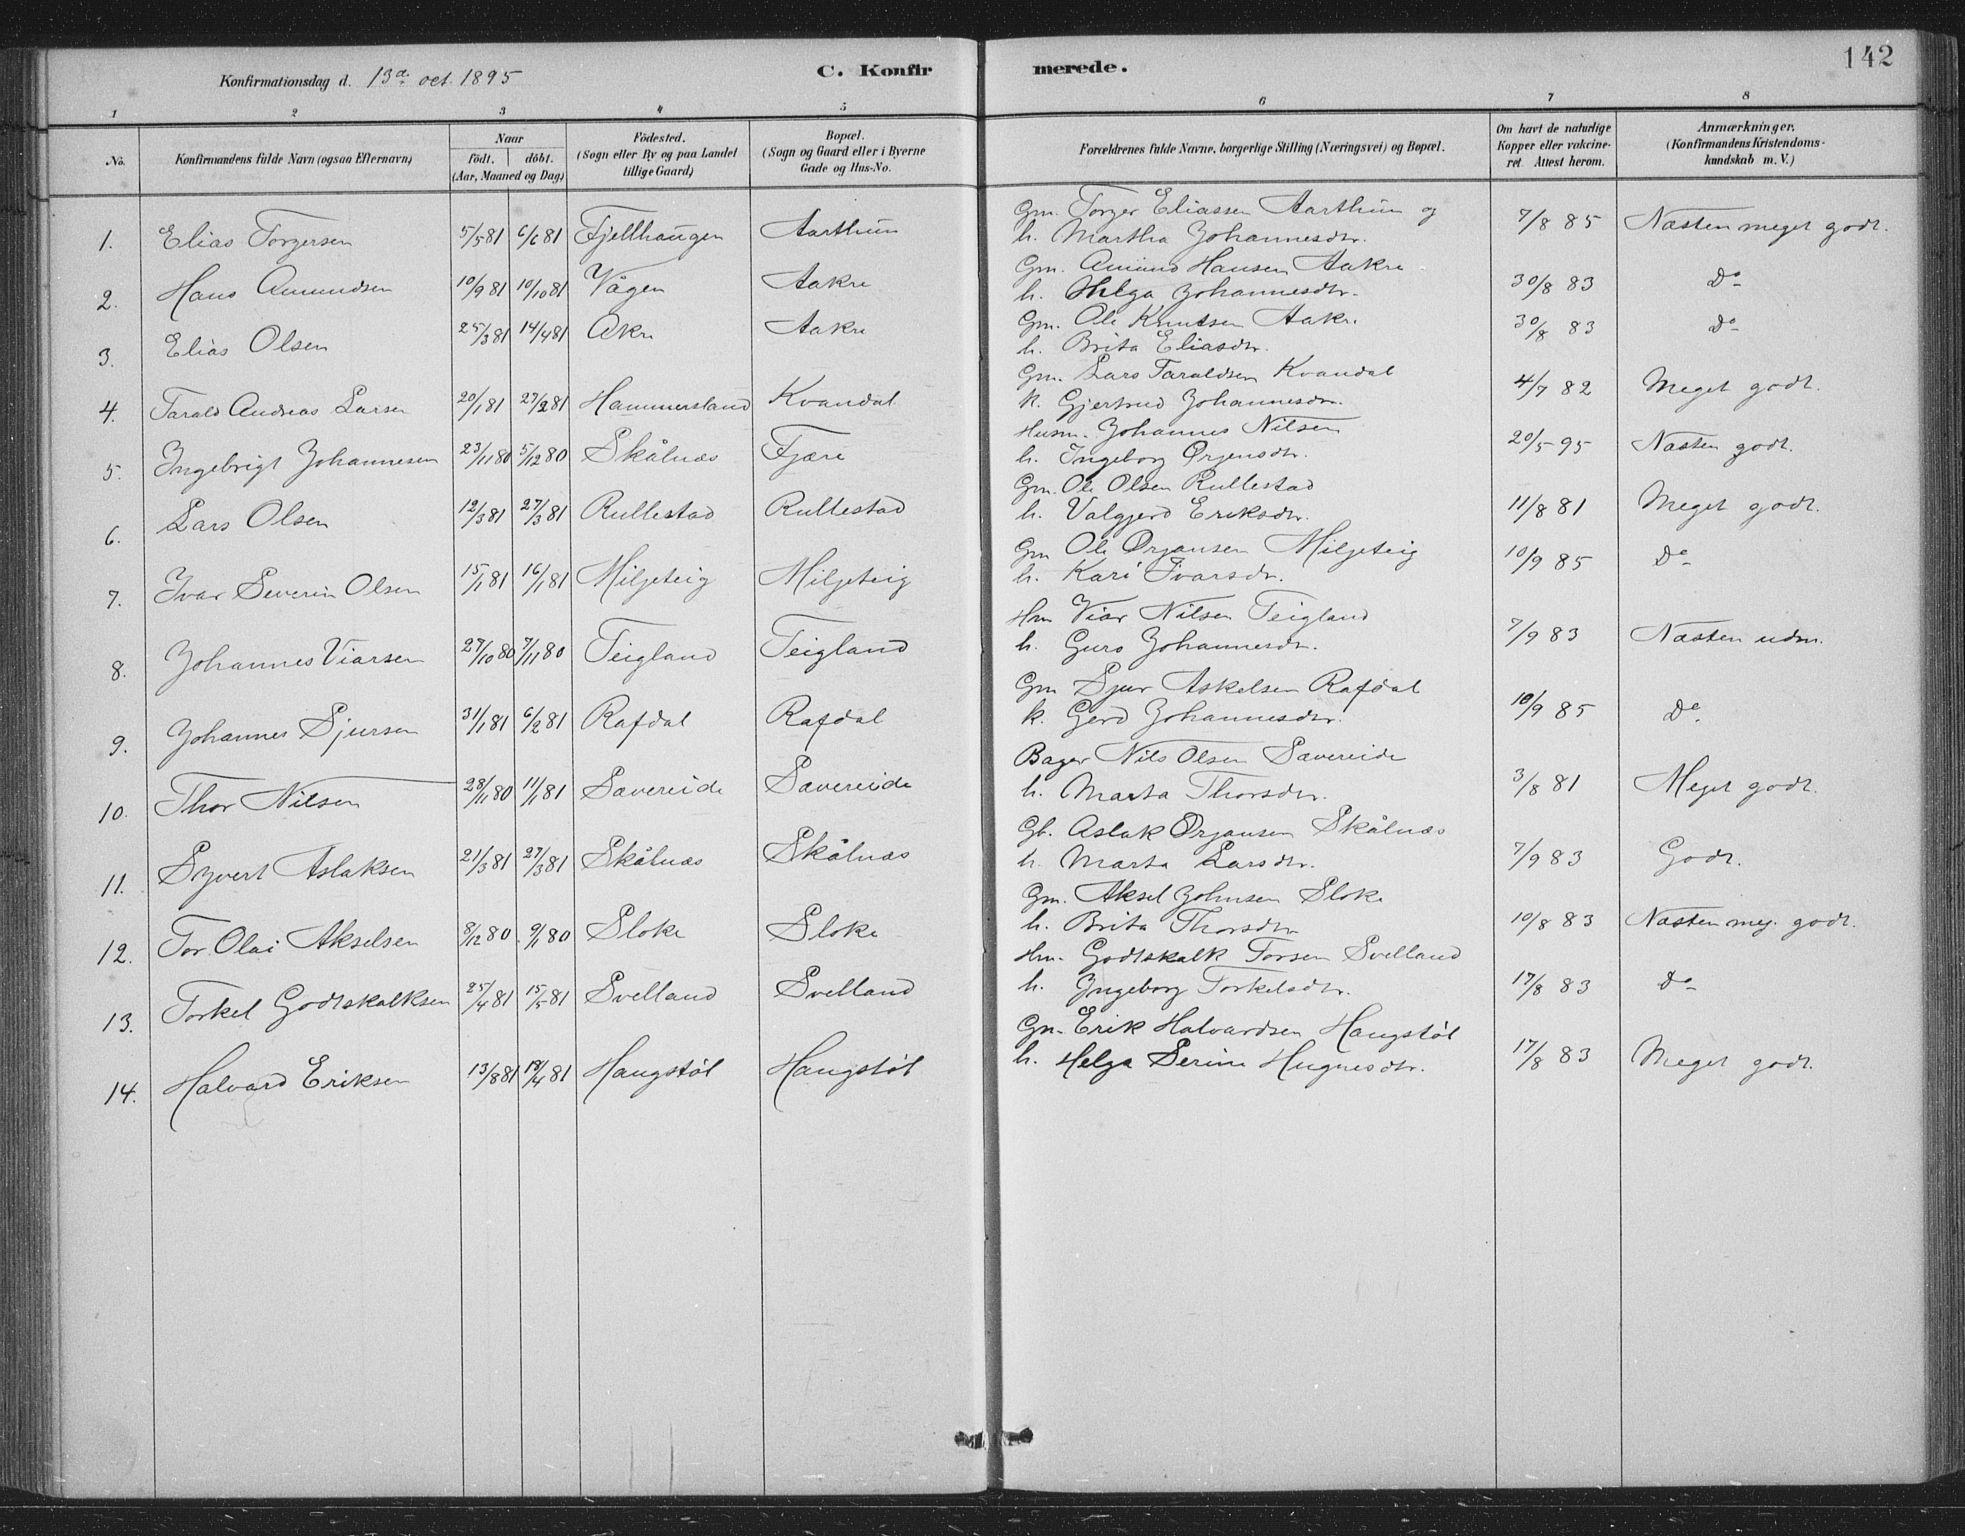 142
Konfirmationsdag d. 13de oct. 1895 C. Konfirmerede.
1 2 3 4 5 6 7 8
No. Konfirmandens fulde Navn (ogsaa Efternavn) Naar født. døbt. (Aar, Maaned og Dag) Fødested. (Sogn eller By og paa Landet tillige Gaard) Bopæl. (Sogn og Gaard eller i Byerne Gade og Hus-No. Forældrenes fulde Navne, borgerlige Stilling (Næringsvei) og Bopæl. Om havt de naturlige Kopper eller vakcineret. Attest herom. Anmærkninger. (Konfirmandens Kristendomskundskab m. V.)
1. Elias Torgersen 5/5 81 6/6 81 Fjellhaugen Aarthun Gm. Torger Eliassen Aarthun og h. Martha Johannesdtr. 7/8 85 Næsten meget godt.
2. Hans Amundsen 10/9 81 10/10 81 Vågen Aakre Gm. Amund Hansen Aakre h. Helga Johannesdtr. 30/8 83 Do
3. Elias Olsen 25/3 81 14/4 81 Akre Aakre Gm. Ole Knutsen Aakre h. Brita Eliasdtr. 30/8 83 Do
4. Tarald Andreas Larsen 20/1 81 27/2 81 Hammersland Kvandal Gm. Lars Taraldsen Kvandal k. Gjertrud Johannesdtr. 4/7 82 Meget godt.
5. Ingebrigt Johannesen 23/11 80 5/12 80 Skålnæs Fjære Husm. Johannes Nilsen h. Ingeborg Ørjensdtr. 20/5 95 Næsten godt.
6. Lars Olsen 12/3 81 27/3 81 Rullestad Rullestad Gm. Ole Olsen Rullestad h. Valgjerd Eriksdtr. 11/8 81 Meget godt.
7. Ivar Severin Olsen 15/1 81 16/1 81 Miljeteig Miljeteig Gm Ole Ørjansen Miljeteig h. Kari Ivarsdtr. 10/9 85 Do
8. Johannes Viarsen 27/10 80 7/11 80 Teigland Teigland Hm Viar Nilsen Teigland h. Guro Johannesdtr. 7/9 83 Næsten udm.
9. Johannes Sjursen 31/1 81 6/2 81 Rafdal Rafdal Gm Sjur Askelsen Rafdal k. Gerd Johannesdtr. 10/9 85 Do
10. Thor Nilsen 28/11 80 11/1 81 Sævereide Sævereide Bager Nils Olsen Sævereide h. Marta Thorsdtr. 3/8 81 Meget godt.
11. Syvert Aslaksen 21/3 81 27/3 81 Skålnæs Skålnæs Gb. Aslak Ørjansen Skålnæs h. Marta Larsdtr. 7/9 83 Godt.
12. Tor Olai Akselsen 8/12 80 9/1 80 Sloke Sloke Gm. Aksel Johnsen Sloke h. Brita Thorsdtr 10/8 83 Næsten meg. godt.
13. Torkel Godtskalksen 25/4 81 15/5 81 Svelland Svelland Hm. Godtskalk Torsen Svelland h. Ingeborg Torkelsdtr. 17/8 83 Do
14. Halvard Eriksen 13/8 81 /4 81 Haugstøl Haugstøl Gm. Erik Halvardsen Haugstøl h. Helga Serine Hugnesdtr. 17/8 83 Meget godt.